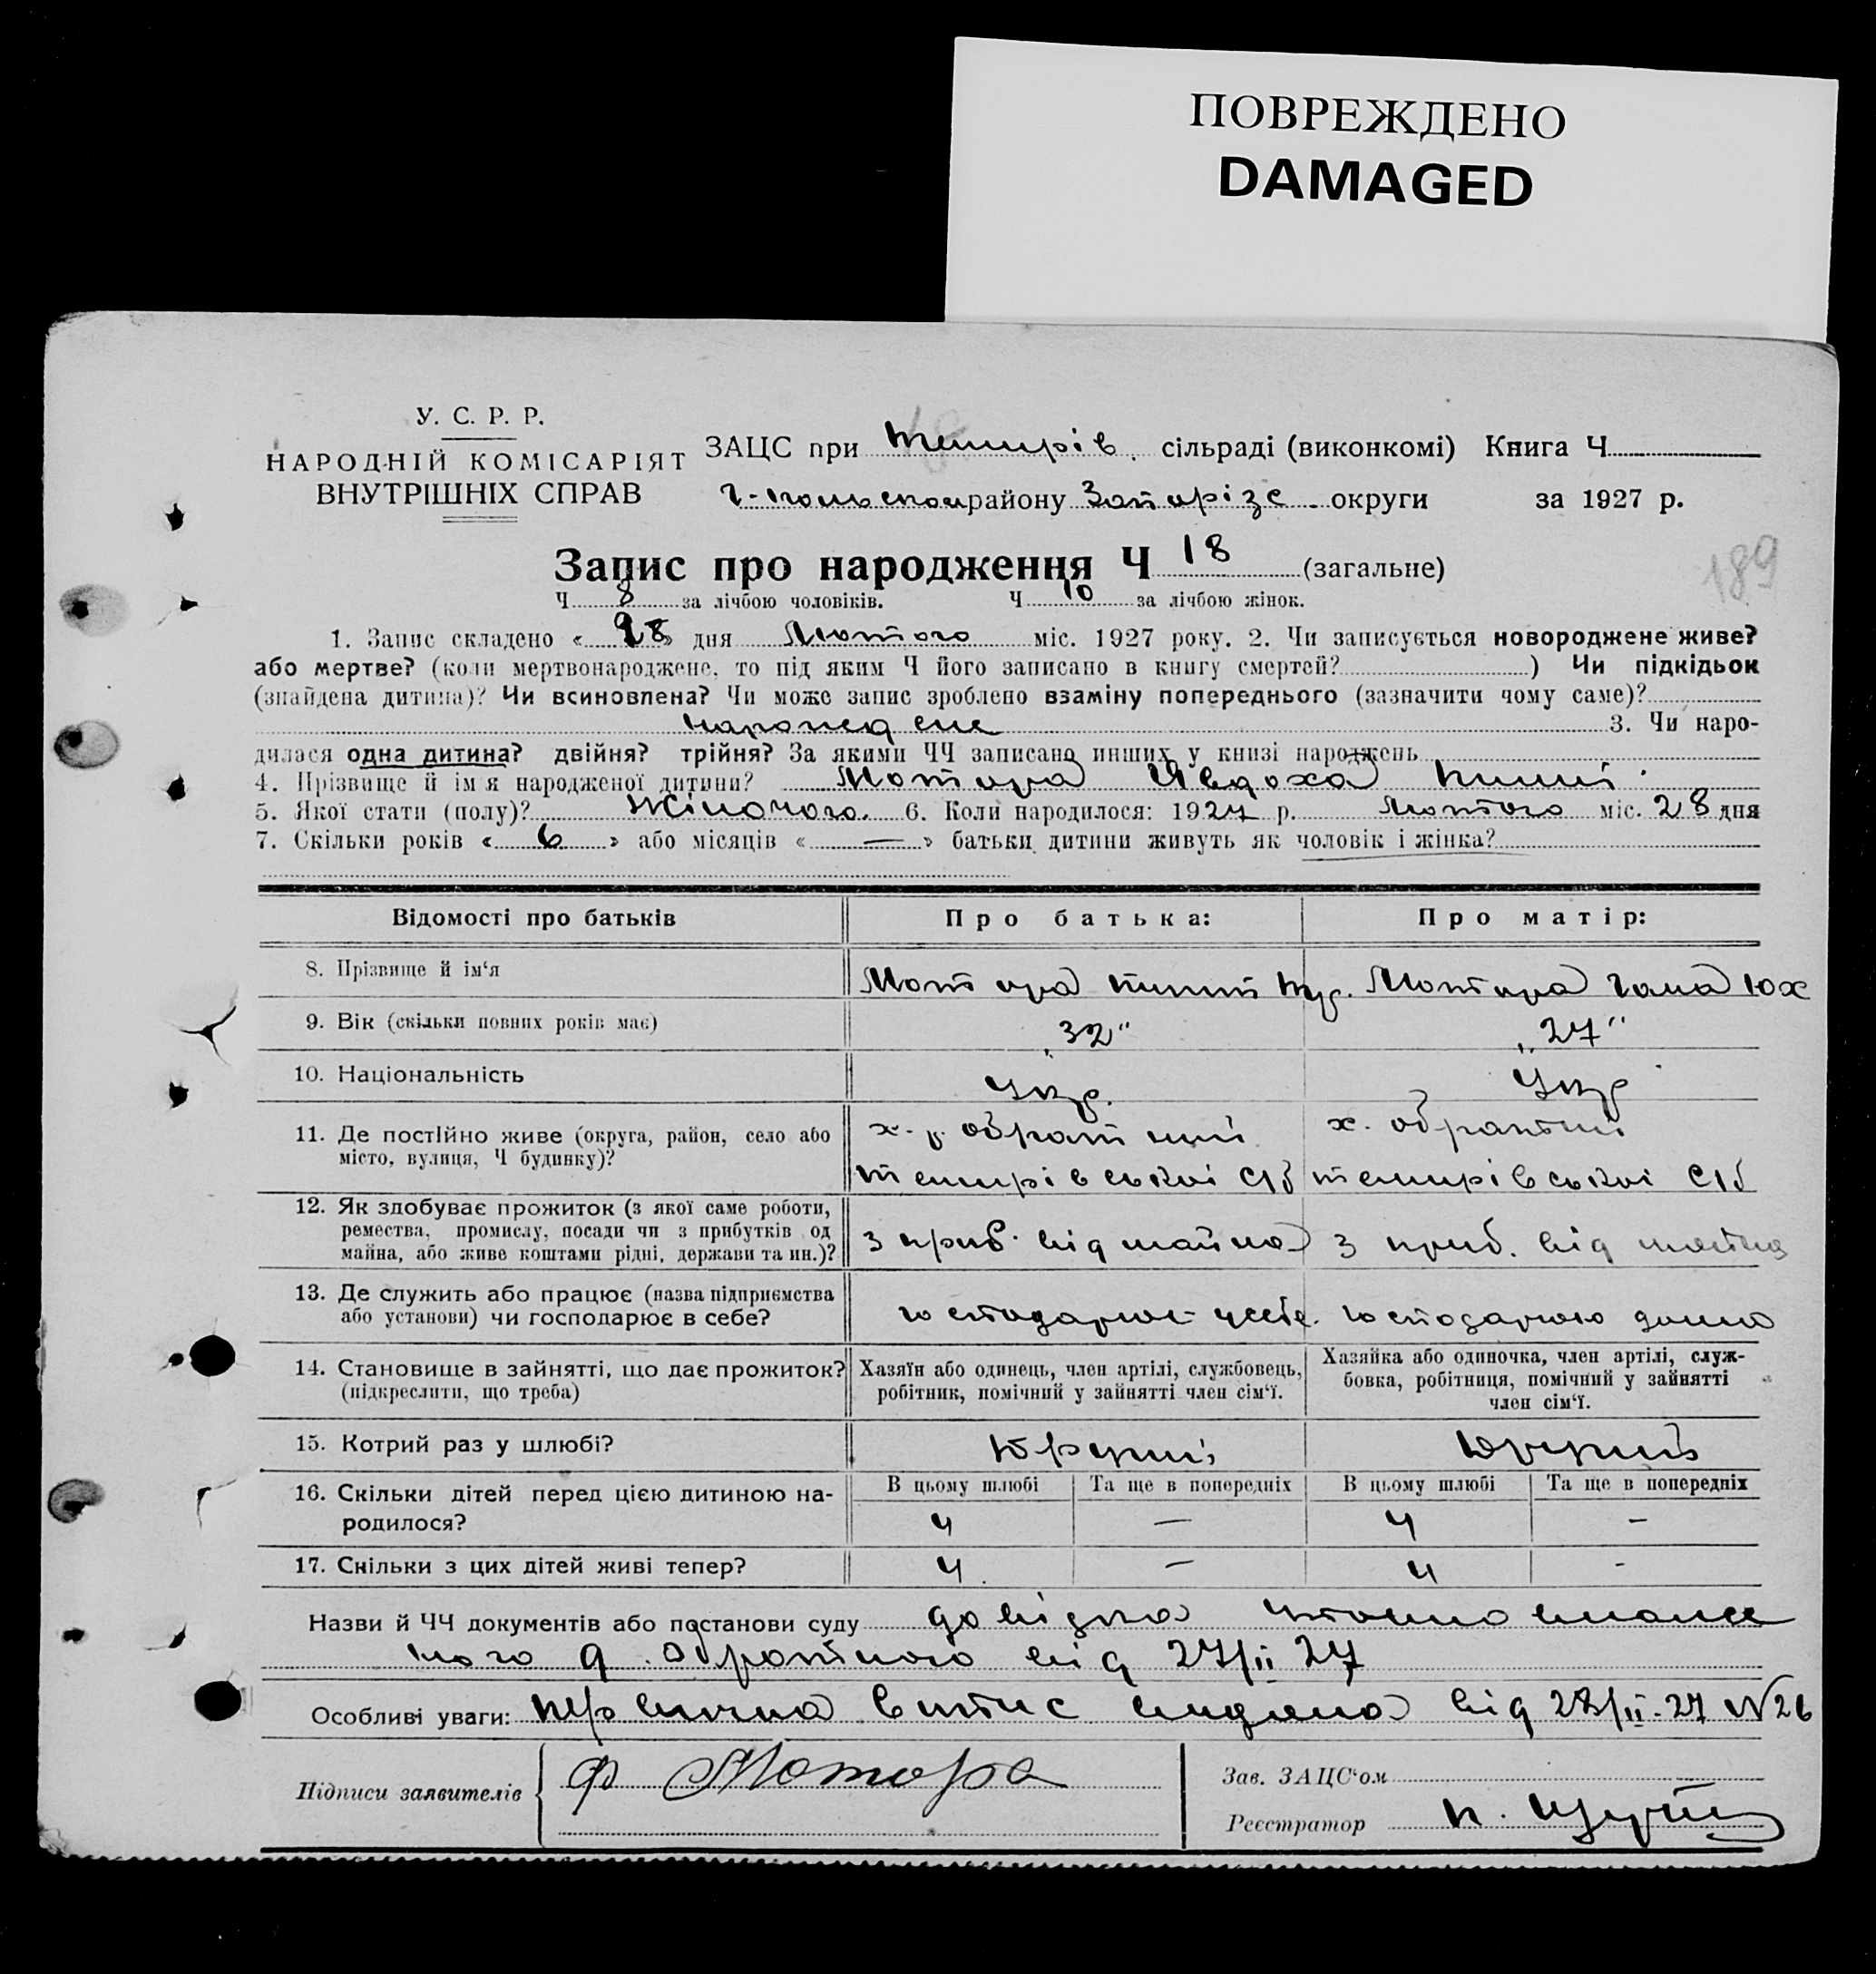 ПОВРЕЖДЕНО
DAMAGED
У. С. Р. Р.
НАРОДНІЙ КОМІСАРІЯТ
ВНУТРІШНІХ СПРАВ
ЗАЦС при Темирів. сільраді (виконкомі) Книга Ч
району Запорізс. округи за 1927 р.
Запис про народження Ч 18 (загальне)
189
Ч 8 за лічбою чоловіків. Ч 10 за лічбою жінок.
1. Запис складено « 28 » дня Лютого міс. 1927 року. 2. Чи записується новороджене живе?
або мертве? (коли мертвонароджене, то під яким Ч його записано в книгу смертей? ) Чи підкідьок
(знайдена дитина)? Чи всиновлена? Чи може запис зроблено взаміну попереднього (зазначити чому саме)?
3. Чи наро-
дилася одна дитина? двійня? трійня? За якими ЧЧ записано инших у книзі народжень
4. Прізвище й ім я народженої дитини? Мотора Явдоха
5. Якої стати (полу)? Жіночого. 6. Коли народилося: 1927 р. Лютого міс. 28 дня
7. Скільки років « 6 » або місяців « — » батьки дитини живуть як чоловік і жінка?
Відомості про батьків Про батька: Про матір:
8. Прізвище й ім‘я Мотора Мотора
9. Вік (скільки повних років має) „32“ „27“
10. Національність Укр. Укр
11. Де постійно живе (округа, район, село або
місто, вулиця, Ч будинку)?
х. р. обратний х. обратний
темирівської С/б темирівської С/б
12. Як здобуває прожиток (з якої саме роботи,
ремества, промислу, посади чи з прибутків од
майна, або живе коштами рідні, держави та ин.)?
з приб. від майна з приб. від майна
13. Де служить або працює (назва підприємства
або установи) чи господарює в себе?
господарює у себе. господарює дома
14. Становище в зайнятті, що дає прожиток?
(підкреслити, що треба)
Хазяїн або одинець, член артілі, службовець,
робітник, помічний у зайнятті член сім‘ї.
Хазяйка або одиночка, член артілі, служ-
бовка, робітниця, помічний у зайнятті
член сім‘ї.
15. Котрий раз у шлюбі?
16. Скільки дітей перед цією дитиною на-
родилося?
В цьому шлюбі Та ще в попередніх В цьому шлюбі Та ще в попередніх
4 — 4 —
17. Скільки з цих дітей живі тепер? 4 — 4 -
Назви й ЧЧ документів або постанови суду довідка уповноважен
ного д. Обратного від 27/II 27
Особливі уваги: первична витис видана від 28/II-27 N26
Підписи заявителів Ф Мотора
Зав. ЗАЦС‘ом
Реєстратор